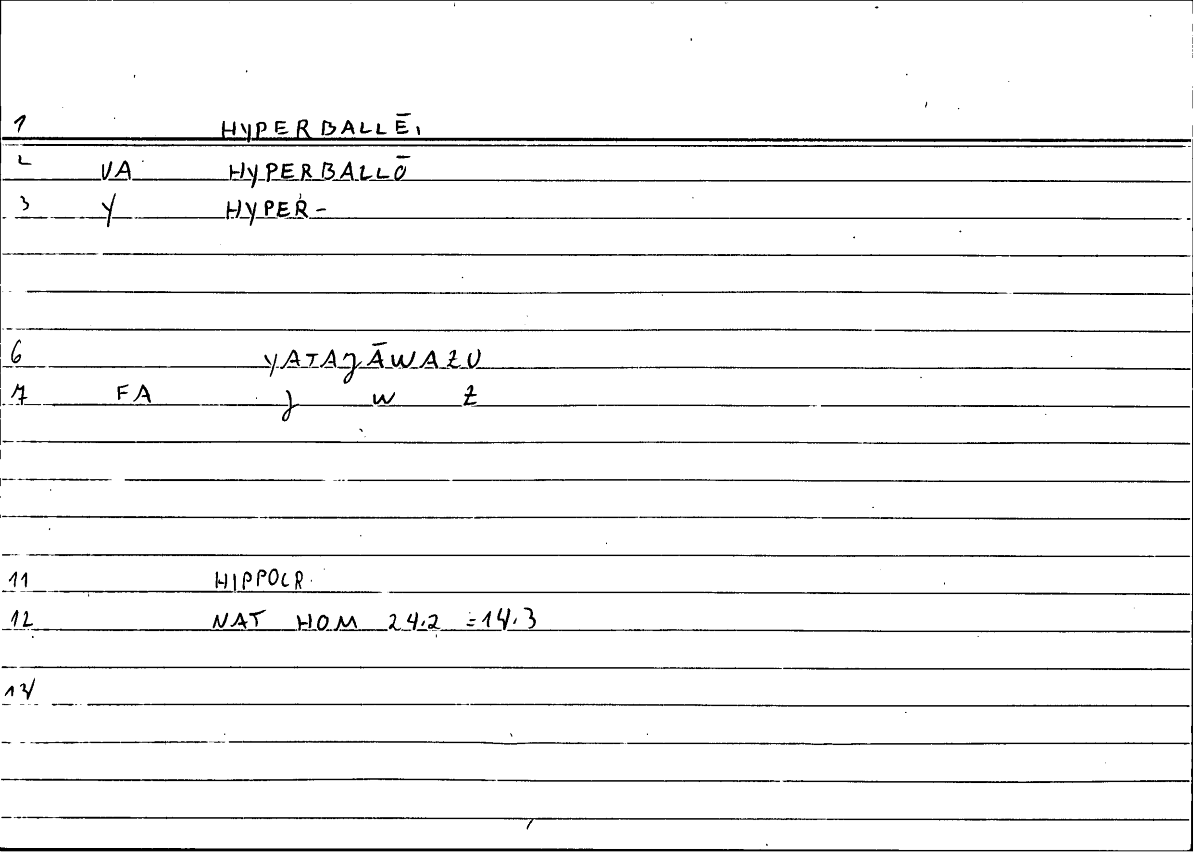 1 HYPERBALLĒI
2 VA HYPERBALLŌ
3 Y HYPER-
6 YATAJĀWAZU
7 FA J W Z
11 HIPPOCR.
12 NAT HOM 24.2 =14.3
13/